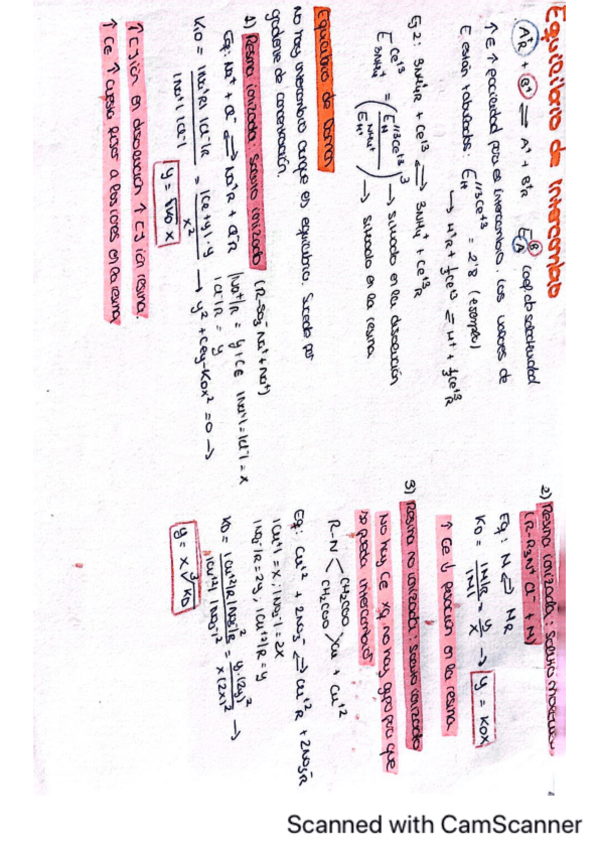 Equilibrio de Intercambio
A⁺R + B⁺ ⇌ A⁺ + B⁺R E^B_A coef de selectividad
↑E ↑ facilidad para el intercambio. Los valores de
E están tabulados: E_H^1/3Ce⁺³ = 2'8 (ejemplo)
→ H⁺R + 1/3Ce⁺³ ⇌ H⁺ + 1/3Ce⁺³R
Ej 2: 3NH₄⁺R + Ce⁺³ ⇌ 3NH₄⁺ + Ce⁺³R
E^Ce⁺³_3NH₄⁺ = (E_H^1/3Ce⁺³ / E_H^NH₄⁺)³ → situado en la disolución
→ situado en la resina
Equilibrio de Donnan
No hay intercambio aunque es equilibrio. Sucede por
gradiente de concentración.
1) Resina ionizada: soluto ionizado (R-SO₃⁻Na⁺ + Na⁺)
Eq: Na⁺ + Cl⁻ ⇌ Na⁺R + Cl⁻R |Na⁺|R = y + Ce |Na⁺| = |Cl⁻| = x
|Cl⁻|R = y
KD = |Na⁺|R |Cl⁻|R / |Na⁺| |Cl⁻| = (Ce + y) · y / x² → y² + Cey - KDx² = 0 →
y = √KD x
↑C ión en disolución ↑C ión resina.
↑Ce ↑ cuesta pasar a los iones en la resina
2) Resina ionizada: soluto molecular
(R-R₃N⁺Cl⁻ + N)
Eq: N ⇌ NR
KD = |N|R / |N| = y/x → y = KDx
↑Ce ↓ penetración en la resina
3) Resina no ionizada: soluto ionizado
No hay Ce xq no hay grupo que
se pueda intercambiar
R-N < CH₂COO CH₂COO > Cu + Cu⁺²
Eq: Cu⁺² + 2NO₃ ⇌ Cu⁺²R + 2NO₃⁻R
|Cu⁺²| = x; |NO₃⁻| = 2x
|NO₃⁻|R = 2y, |Cu⁺²|R = y
KD = |Cu⁺²|R |NO₃⁻|²R / |Cu⁺²| |NO₃⁻|² = y·(2y)² / x(2x)² →
y = x ∛KD
Scanned with CamScanner